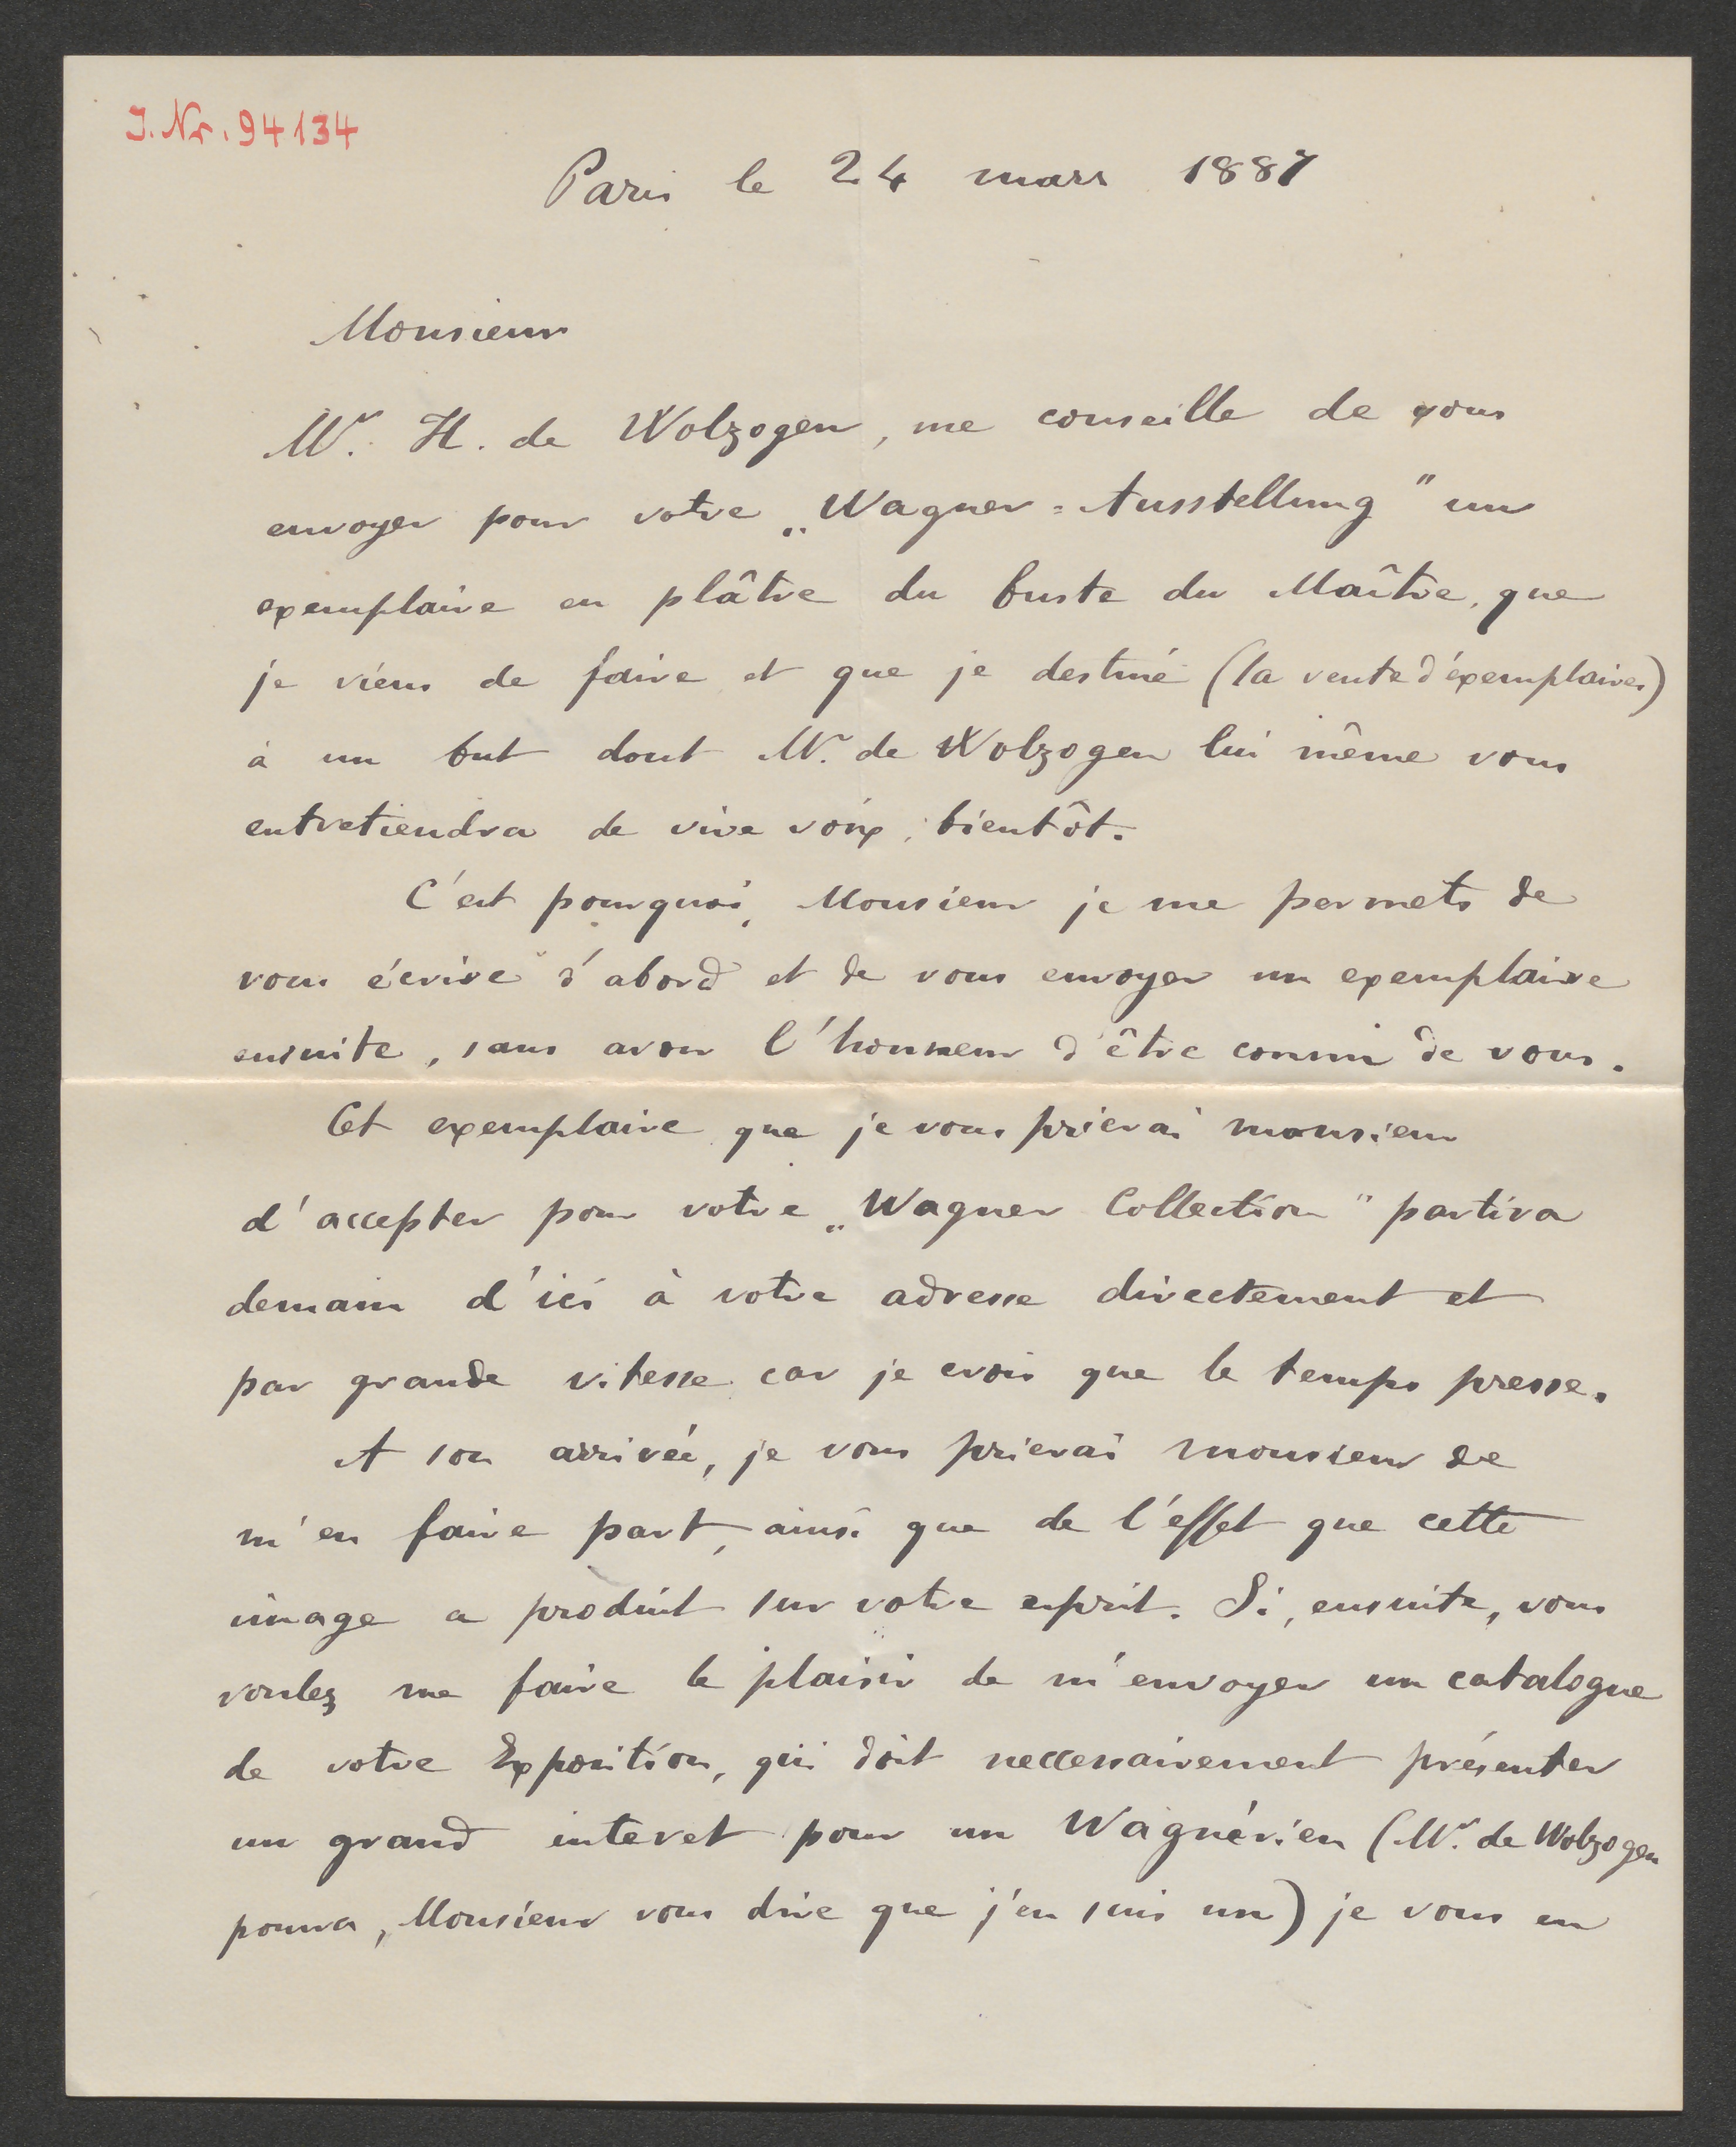 J. Nr. 94134
Paris le 24 mars 1887
Monsieur
Mr. H. de Wolzogen, me conseille de vous
envoyer pour votre „Wagner=Ausstellung" un
exemplaire en plâtre du buste du Maître, que
je viens de faire et que je destine (la vente d'éxemplaires)
à un but dont Mr. de Wolzogen lui même vous
entretiendra de vive voix, bientôt.
C'est pourquoi, Monsieur je me permets de
vous écrire d'abord et de vous envoyer un exemplaire
ensuite, sans avoir l'honneur d'être connu de vous.
Cet exemplaire que je vous prierai monsieur
d'accepter pour votre „Wagner Collection" partira
demain d'ici à votre adresse directement et
par grande vitesse car je crois que le temps presse.
A son arrivée, je vous prierai monsieur de
m'en faire part, ainsi que de l'effet que cette
image a produit sur votre esprit. Si, ensuite, vous
voulez me faire le plaisir de m'envoyer un catalogue
de votre Exposition, qui doit neccessairement présenter
un grand interet pour un Wagnérien (Mr. de Wolzogen
pourra, Monsieur vous dire que j'en suis un) je vous en